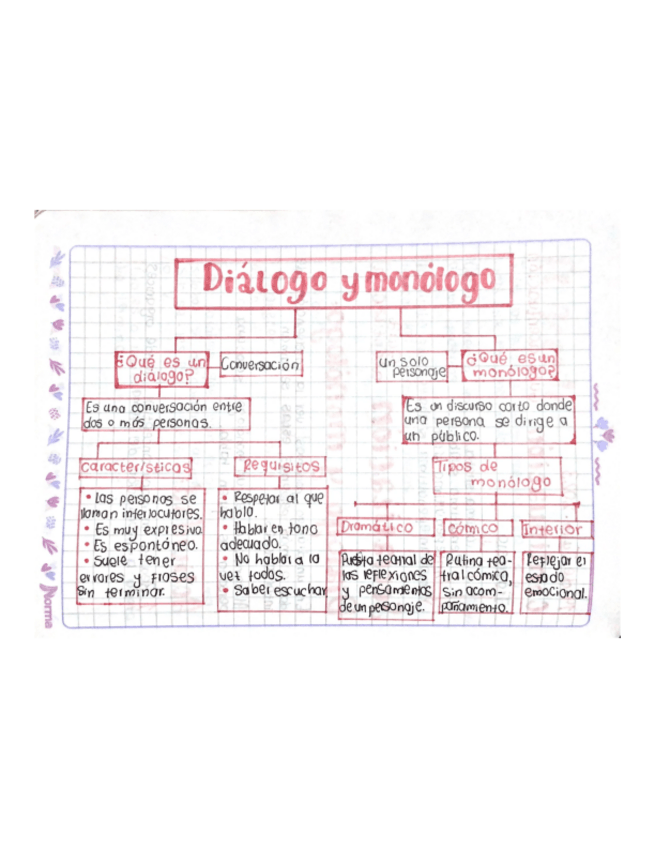 Diálogo y monólogo
¿Qué es un
diálogo?
Conversación
Un solo
personaje
¿Qué es un
monólogo?
Es una conversación entre
dos o más personas.
Es un discurso corto donde
una persona se dirige a
un público.
Características
Requisitos
Tipos de
monólogo
• Las personas se
llaman interlocutores.
• Es muy expresiva
• Es espontáneo.
• Suele tener
errores y frases
sin terminar.
• Respetar al que
habla.
• Hablar en tono
adecuado.
• No hablar a la
vez todos.
• Saber escuchar
Dramático
Cómico
Interior
teatral de
las reflexiones
y pensamientos
de un personaje.
Rutina tea-
tral cómica,
sin acom-
pañamiento.
Reflejar el
estado
emocional.
Norma